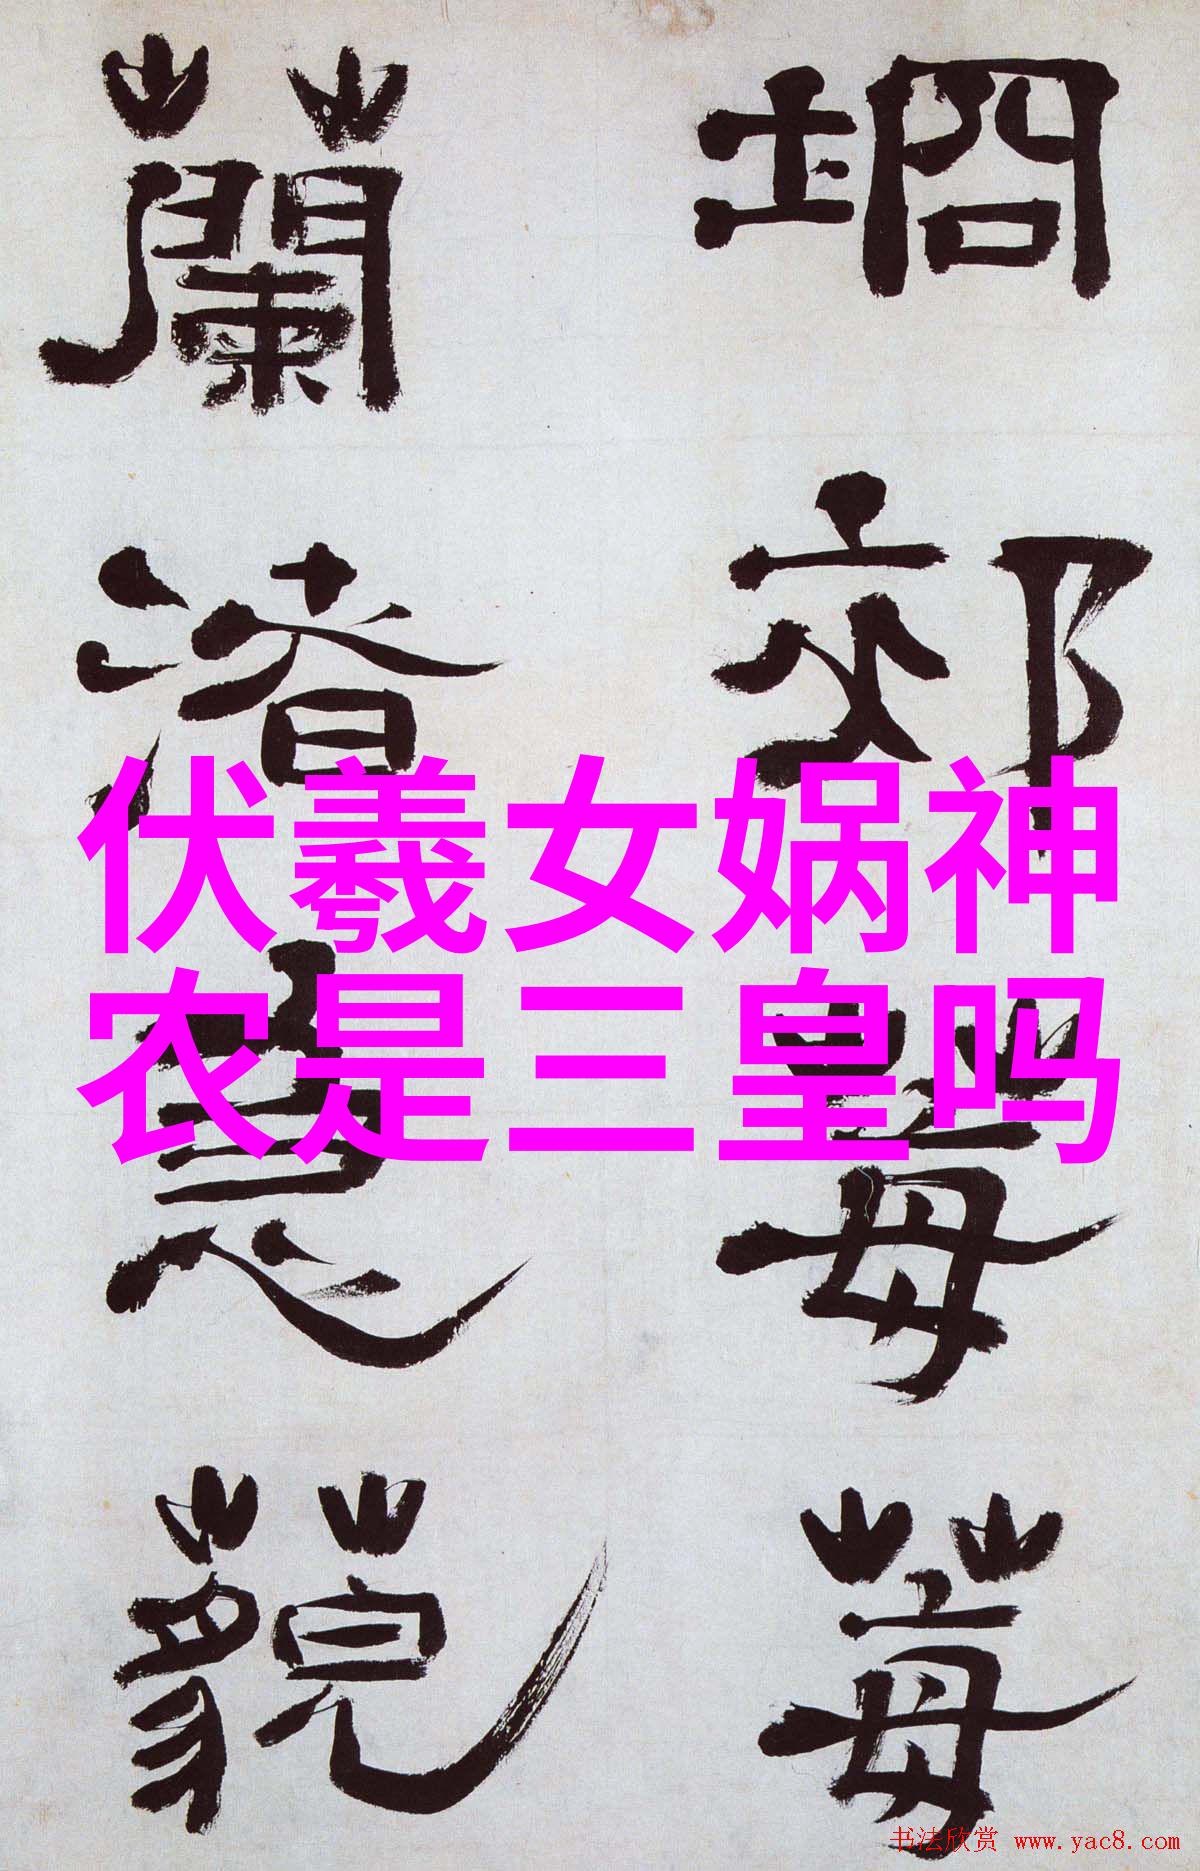 坰郊莓莓
蘭渚藐
伏羲女娲神
农是三皇吗
书法欣赏 www.yac8.com